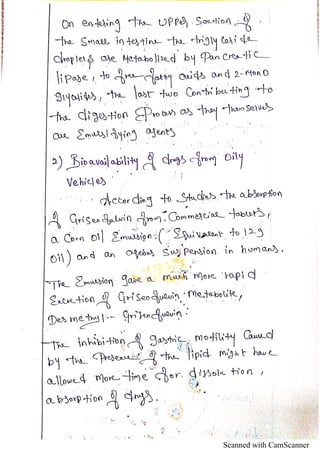 On entering the UPPer Section of
the Small intestine the triglyceride
droplets are Metabolized by Pancreatic
lipase, to free fatty acids and 2-mono
glycerides, the last two Contributing to
the digestion Process as they themselves
are Emulsifying agents
2) Bioavailability of drugs from Oily
Vehicles
According to Studies the absorption
of Griseofulvin from Commercial tablets,
a Corn oil Emulsion (Equivalent to 12g
oil) and an aqeous Suspension in humans.
The Emulsion gave a much more rapid
Excretion of Griseofulvin Metabolite,
Desmethyl-Griseofulvin
The inhibition of gastric motility Caused
by the Presence of the lipid might have
allowed More time for dissolution,
absorption of drugs.
Scanned with CamScanner